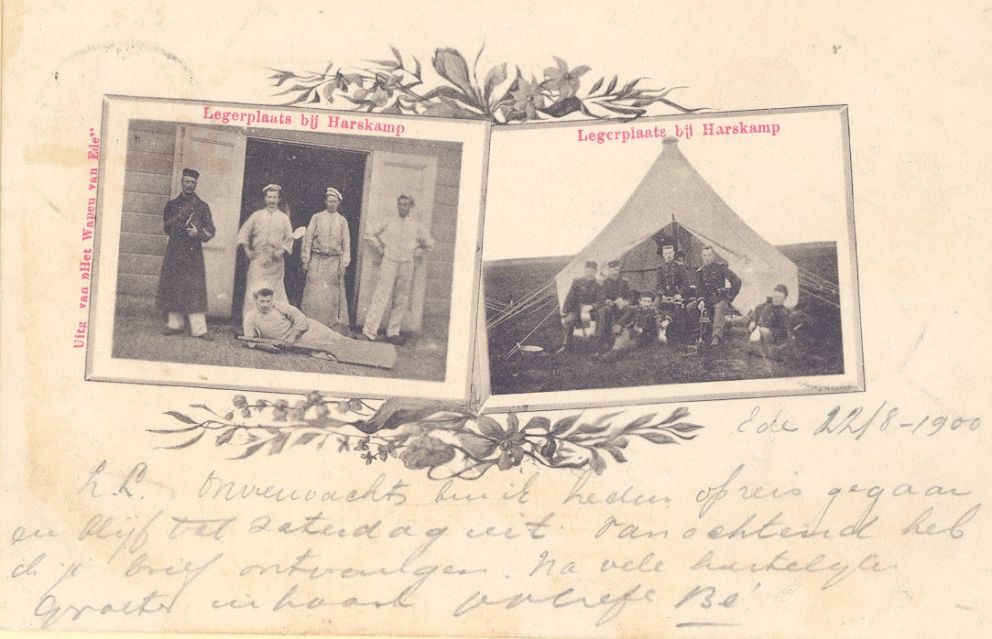 Legerplaats bij Harskamp
Legerplaats bij Harskamp
Uitg van „Het Wapen van Ede”
Ede 22/8-1900
L. Onverwachts ben ik heden op reis gegaan
en blijf tot Zaterdag uit Vanochtend heb
ik je brief ontvangen. Na vele hartelijke
Groeten Bé